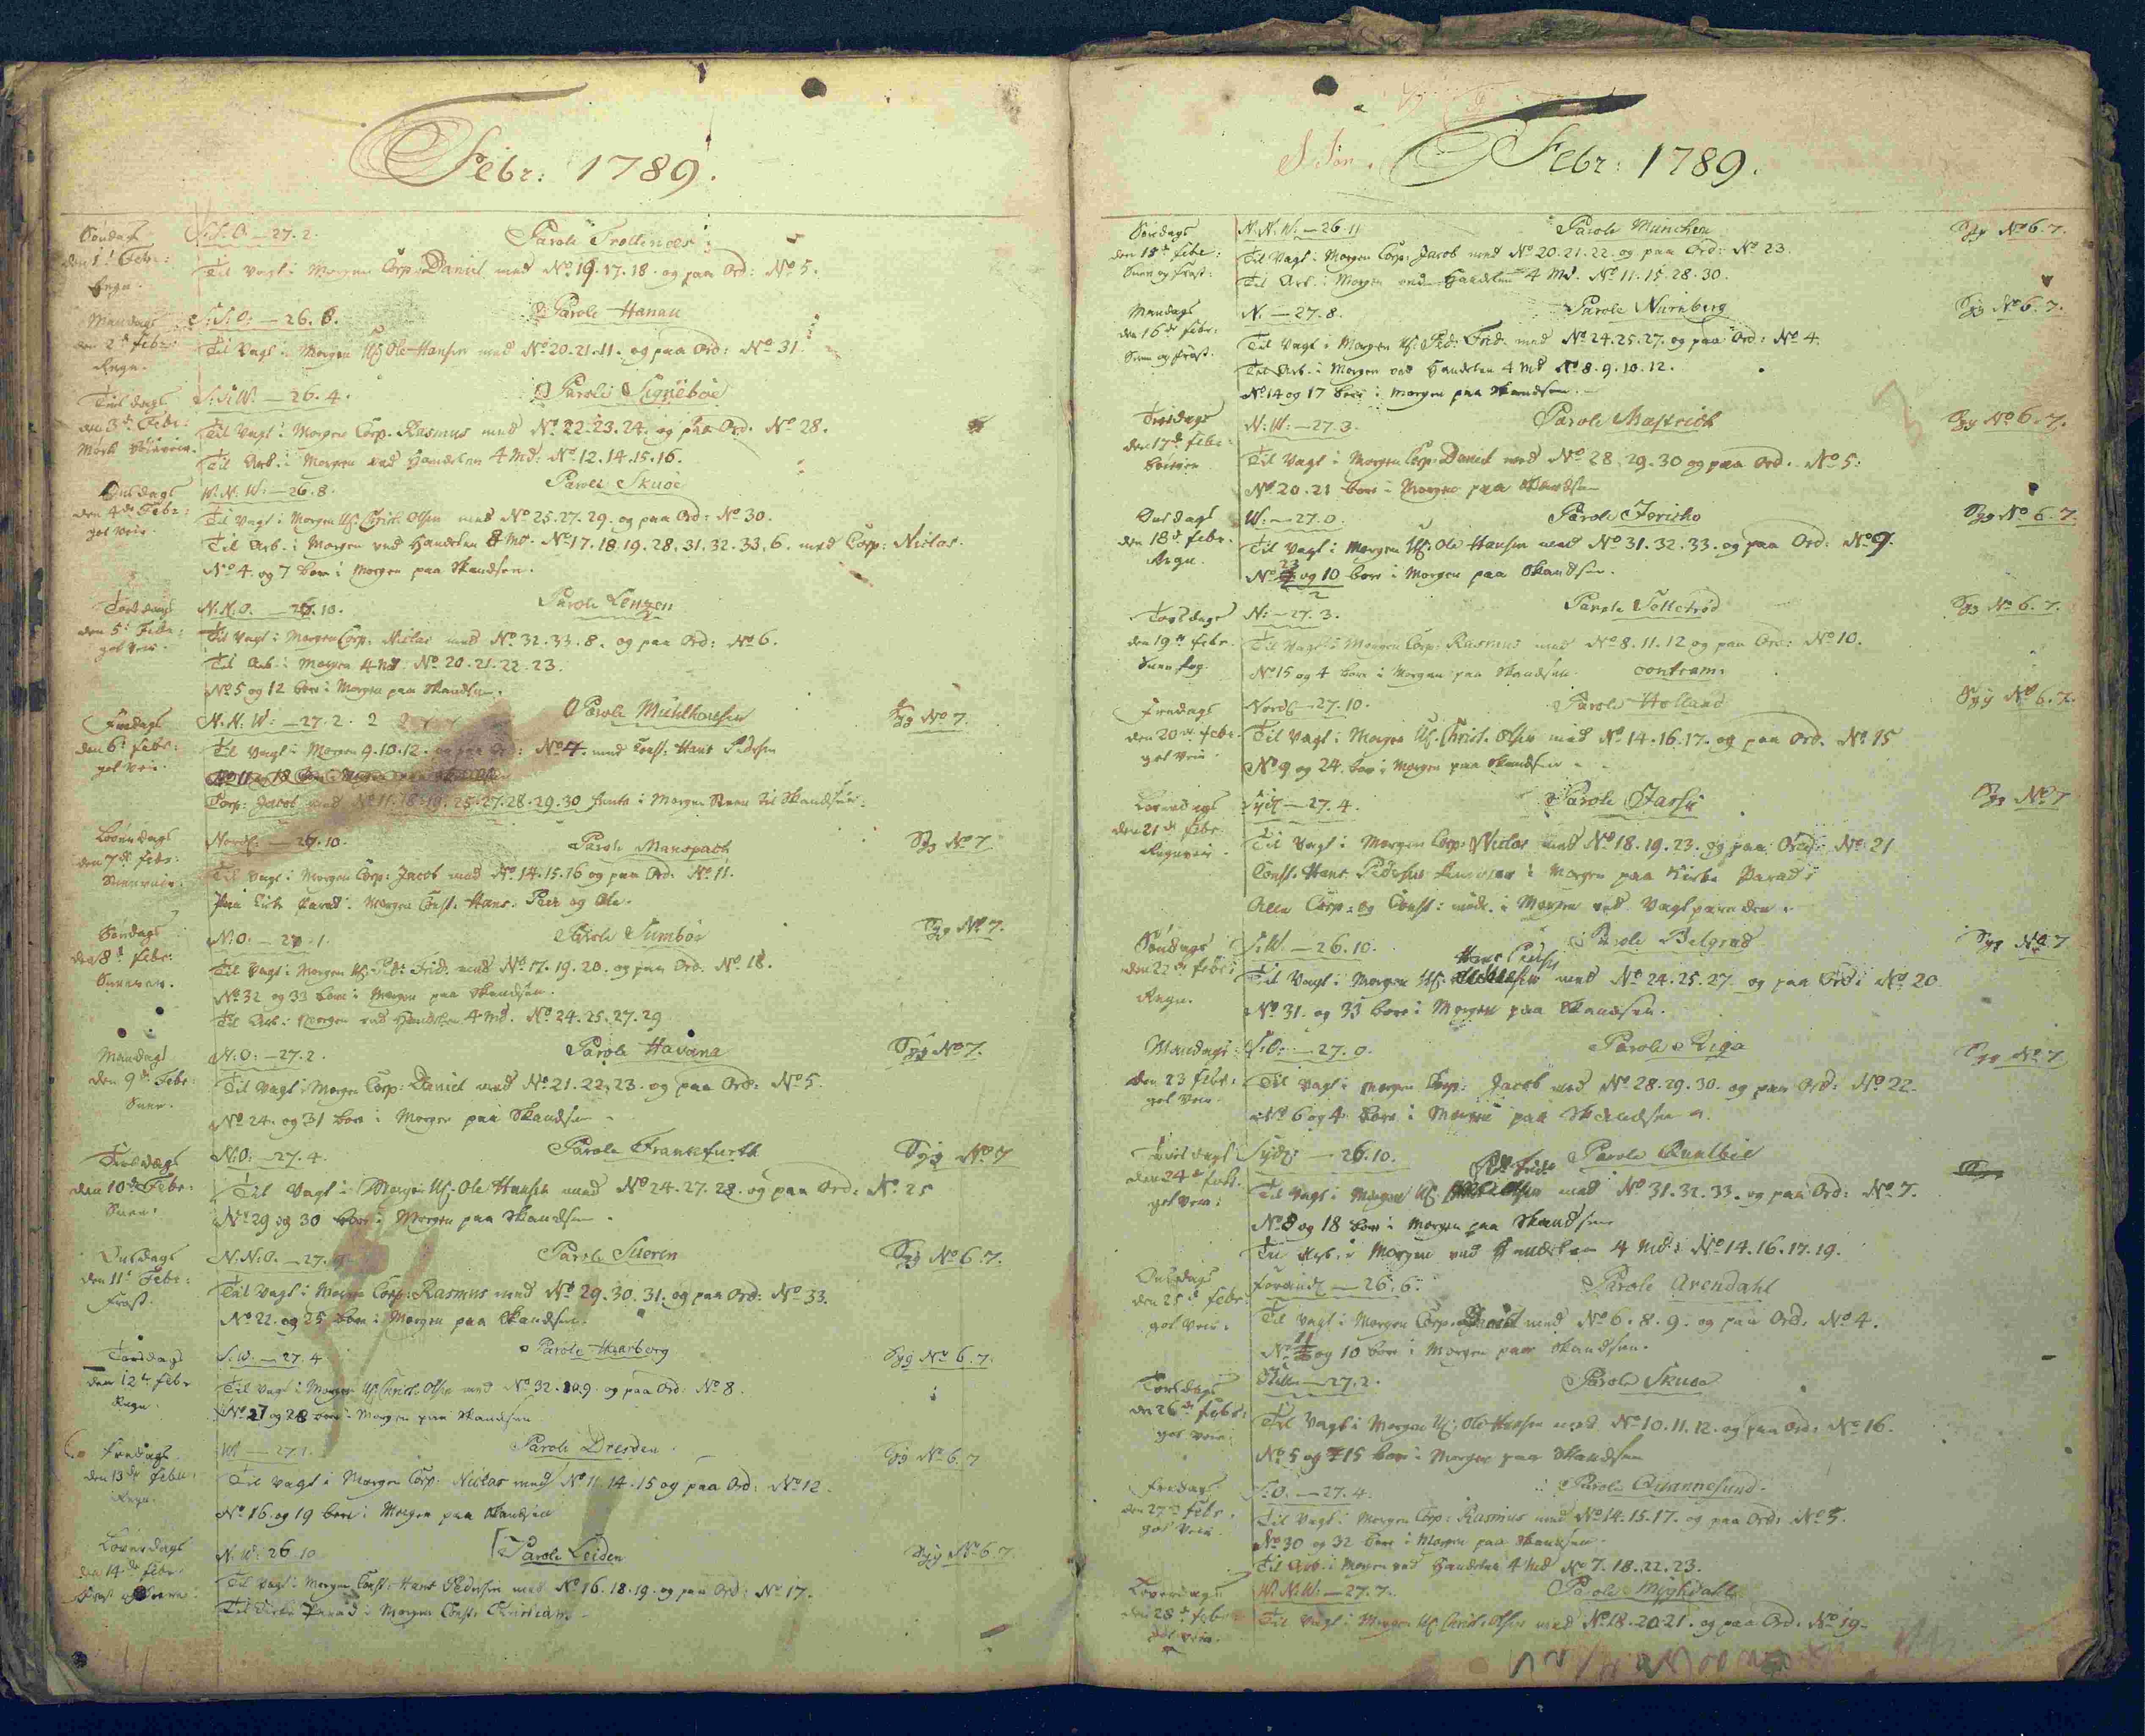 Febr: 1789.
Søndags S.S.O. — 27. 2. Parole Trollenoes
den 1t Febr: Til Vagt i Morgen Corp: Daniel med No 19. 17. 18. og paa Ord: No 5.
Regn.
Mandags S.S.O: — 26. 8. Parole Hanau
den 2d Febr: Til Vagt i Morgen Uf: Ole Hansen med No 20. 21. 11. og paa Ord: No 31.
Regn.
Tiisdags S:S:W. — 26. 4. Parole Signebøe
den 3de Febr: Til Vagt i Morgen Corp. Rasmus med No 22. 23. 24. og paa Ord. No 28.
Mørk
Til Arb. i Morgen ved Handelen 4 Md: No 12. 14. 15. 16.
Onsdags W. N. W: — 26. 8. Parole Skuøe
den 4de Febr: Til Vagt i Morgen Uf: Christ. Olsen med No 25. 27. 29. og paa Ord: No 30.
got Veir. Til Arb. i Morgen ved Handelen 8 Md. No 17. 18. 19. 28. 31. 32. 33. 6. med Corp: Niclas.
No 4. og 7 bær i Morgen paa Skandsen.
Torsdags N. N. O. — 26. 10. Parole Lenzen
den 5t Febr: Til Vagt i Morgen Corp: Niclas med No 32. 33. 8. og paa Ord: No 6.
got Veir. Til Arb. i Morgen 4 Md No 20. 21. 22. 23.
No 5 og 12 bær i Morgen paa Skandsen.
Fredags N. N. W: — 27. 2. Parole Mühlhousen Syg No 7.
den 6t Febr: Til Vagt i Morgen 9. 10. 12. og paa Ord: No 4. med Const: Hans Pedersen
got Veir.
Corp: Jacob med No 11. 18. 19. 25. 27. 28. 29. 30 hente i Morgen Steen til Skandsen.
Løverdags Nordl. — 26. 10. Parole Manspach Syg No 7
den 7de Febr: Til Vagt i Morgen Corp: Jacob med No 14. 15. 16 og paa Ord: No 11.
Sneeveir. Paa Kirke Parade i Morgen Const. Hans. Peer og Ole.
Søndags N:O. — 27. 1. Parole Sumbøe Syg No 7.
den 8de Febr: Til Vagt i Morgen Uf: Ped: Frid: med No 17. 19. 20. og paa Ord. No 18.
Sneeveir. No 32 og 33 bær i Morgen paa Skandsen.
Til Arb. i Morgen ved Handelen 4 Md. No 24. 25. 27. 29
Mandags N. O: — 27. 2. Parole Havana Syg No 7.
den 9de Febr: Til Vagt i Morgen Corp: Daniel med No 21. 22. 23. og paa Ord: No 5.
Snee. No 24. og 31 bær i Morgen paa Skandsen
Tiisdags N:O: — 27. 4. Parole Frankefurth Syg No 7
den 10de Febr: Til Vagt i Morgen Uf: Ole Hansen med No 24. 27. 28. og paa Ord: No 25
Snee. No 29 og 30 bær i Morgen paa Skandsen.
Onsdags N: N: O. — 27. Parole Sueren Syg No 6. 7.
den 11t Febr: Til Vagt i Morgen Corp: Rasmus med No 29. 30. 31. og paa Ord: No 33.
Frost. No 22. og 25 bær i Morgen paa Skandsen.
Torsdags S. W. — 27. 4 Parole Haarberg Syg No 6. 7.
den 12t Febr Til Vagt i Morgen Uf: Christ. Olsen med No 32. 10. 9. og paa Ord: No 8.
Regn. No 27 og 28 bær i Morgen paa Skandsen
Fredags W. — 27. 1. Parole Dresden. Syg No 6. 7
den 13de Febr: Til Vagt i Morgen Corp: Niclas med No 11. 14. 15 og paa Ord: No 12.
Regn. No 16. og 19 bær i Morgen paa Skandsen
Løverdags N. W: 26. 10. Parole Leiden Syg No 6. 7.
den 14de Febr. Til Vagt i Morgen Const: Hans Pedersen med No 16. 18. 19. og paa Ord: No 17.
Frost og Snee. Til Kirke Parade i Morgen Const: Christian.
Febr: 1789.
Søndags N. N. W: — 26. 11 Parole München Syg No 6. 7.
den 15de Febr: Til Vagt i Morgen Corp: Jacob med No 20. 21. 22. og paa Ord: No 23.
Snee og Frost. Til Arb. i Morgen ved Handelen 4 Md. No 11. 15. 28. 30.
Mandags N. — 27. 8. Parole Nürnberg Syg No 6. 7.
den 16de Febr: Til Vagt i Morgen Uf: Ped: Frid. med No 24. 25. 27. og paa Ord: No 4.
Snee og Frost. Til Arb. i Morgen ved Handelen 4 Md No 8. 9. 10. 12.
No 14 og 17 bær i Morgen paa Skandsen.
Tiisdags N: W: — 27. 3. Parole Mastrich Syg No 6. 7.
den 17de Febr: Til Vagt i Morgen Corp: Daniel med No 28. 29. 30 og paa Ord. No 5:
No 20. 21 bær i Morgen paa Skandsen
Onsdags W: — 27. 0. Parole Jericho Syg No 6. 7.
den 18de Febr. Til Vagt i Morgen Uf: Ole Hansen med No 31. 32. 33. og paa Ord: No 9.
Regn. No 23 og 10 bær i Morgen paa Skandsen.
Torsdags N: — 27. 3. Parole Selletrød Syg No 6. 7.
den 19de Febr. Til Vagt i Morgen Corp: Rasmus med No 8. 11. 12 og paa Ord: No 10.
Snee fog. No 15 og 4 bær i Morgen paa Skandsen. contram:
Fredags Nordl — 27. 10. Parole Holland Syg No 6. 7.
den 20de Febr. Til Vagt i Morgen Uf: Christ. Olsen med No 14. 16. 17. og paa Ord. No 15
got Veir No 9 og 24. bær i Morgen paa Skandsen
Løverdags Sydl — 27. 4. Parole Jassy Syg No 7
den 21de Febr. Til Vagt i Morgen Corp: Niclas med No 18. 19. 23. og paa Ord: No 21
Regnveir Const. Hans Pedersen i Morgen paa Kirke Parade
Alle Corp: og Const: møde i Morgen ved Vagtparaden.
Søndags S: W. — 26. 10. Parole Belgrad Syg No 7
Hans Peders
den 22de Febr: Til Vagt i Morgen Uf: med No 24. 25. 27. og paa Ord: No 20
Regn. No 31. og 33 bær i Morgen paa Skandsen.
Mandags S:O: — 27. 0. Parole Riga Syg No 7
den 23 Febr: Til Vagt i Morgen Corp: Jacob med No 28. 29. 30. og paa Ord: No 22.
got Veir. No 6 og 4 bær i Morgen paa Skandsen.
Tiisdags Sydl: — 26. 10. Parole Qualbøe
Ped: Frid:
den 24de Febr. Til Vagt i Morgen Uf: med No 31. 32. 33. og paa Ord: No 7.
got Veir: No 8 og 18 bær i Morgen paa Skandsen
Til Arb. i Morgen ved Handelen 4 Md: No 14. 16. 17. 19.
Onsdags Forandl — 26. 6. Parole Arendahl
den 25de Febr: Til Vagt i Morgen Corp. Daniel med No 6. 8. 9. og paa Ord. No 4.
got Veir. No 11 og 10 bær i Morgen paa Skandsen.
Torsdags Stille — 27. 2. Parole Skuøe
den 26de Febr: Til Vagt i Morgen Uf: Ole Hansen med No 10. 11. 12. og paa Ord: No 16.
got Veir. No 5 og 15 bær i Morgen paa Skandsen
Fredags S:O. — 27. 4. Parole Qvannesund.
den 27de Febr. Til Vagt i Morgen Corp: Rasmus med No 14. 15. 17. og paa Ord: No 5.
got Veir. No 30 og 32 bær i Morgen paa Skandsen.
Til Arb. i Morgen ved Handelen 4 Md No 7. 18. 22. 23.
Løverdags W. N. W: — 27. 7. Parole Myghdahl
den 28de Febr. Til Vagt i Morgen Uf: Christ. Olsen med No 18. 20. 21. og paa Ord. No 19.
got Veir.